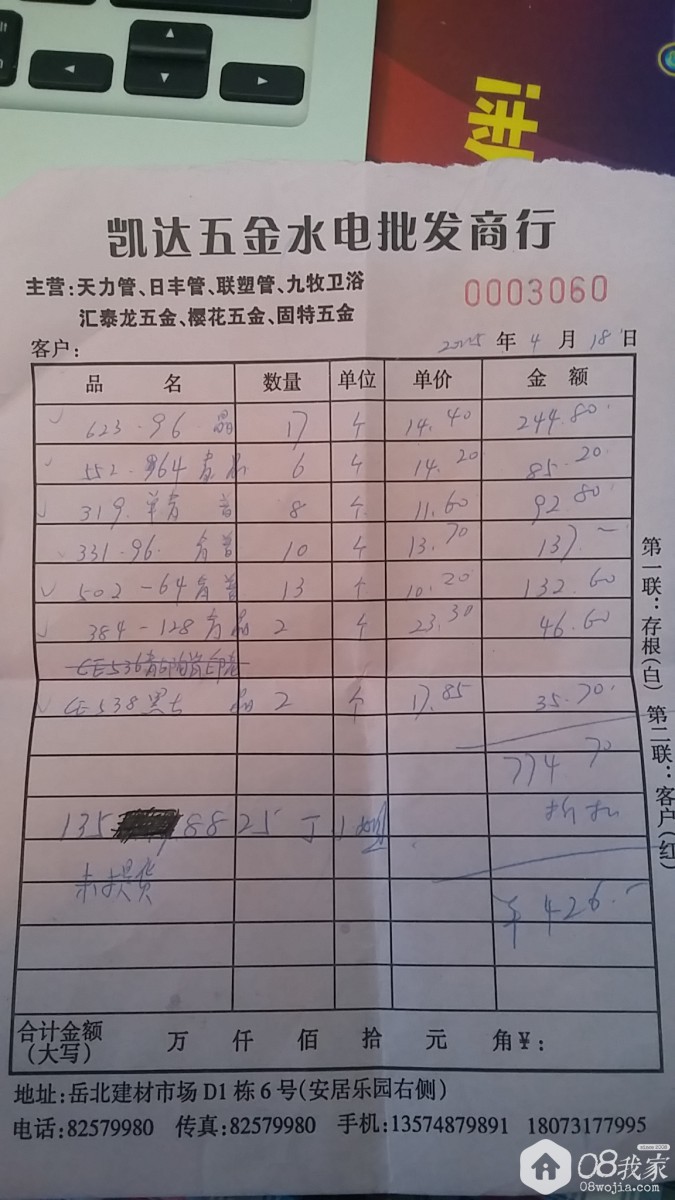 凯达五金水电批发商行
主营:天力管、日丰管、联塑管、九牧卫浴
汇泰龙五金、樱花五金、固特五金
0003060
客户:
2015 年 4 月 18 日
品 名 数量 单位 单价 金 额
623-96 晶 17 个 14.40 244.80
552-964 6 个 14.20 85.20
319 单 普 8 个 11.60 92.80
331-96 普 10 个 13.70 137.-
502-64 普 13 个 10.20 132.60
384-128 晶 2 个 23.30 46.60
CE538黑 晶 2 个 17.85 35.70
774.70
135 8825 丁小姐
折扣
未提货
¥426.-
合计金额
(大写) 万 仟 佰 拾 元 角¥:
第一联:存根(白) 第二联:客户(红)
地址:岳北建材市场D1栋6号(安居乐园右侧)
电话:82579980 传真:82579980 手机:13574879891 18073177995
08我家
08wojia.com